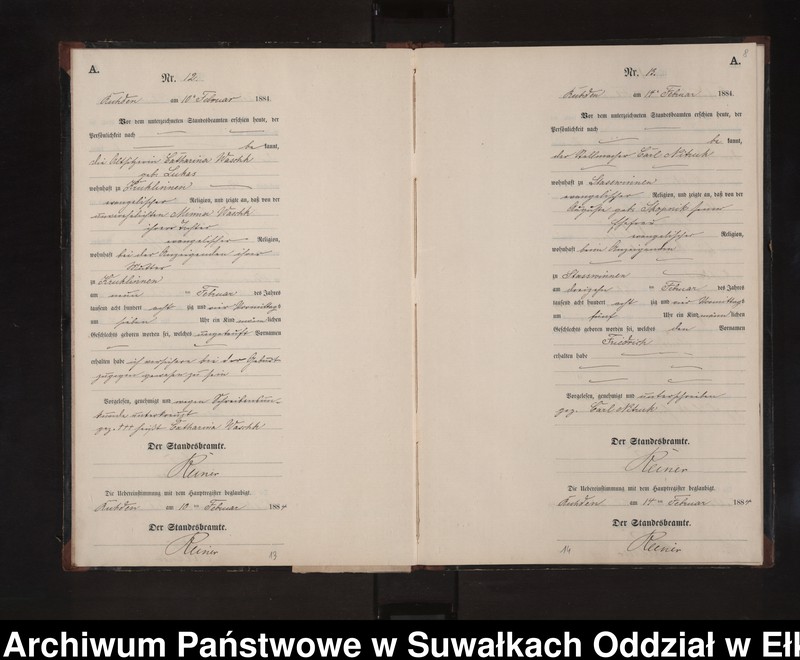 A.
Nr. 12.
am 10ᵗ Februar 1884.
Vor dem unterzeichneten Standesbeamten erschien heute, der
Persönlichkeit nach
be kannt,
die Catharina Waschk
geb. Lukas
wohnhaft zu Kruklinnen
evangelischer Religion, und zeigte an, daß von der
unverehelichten Minna Waschk
ihrer Tochter
evangelischer Religion,
wohnhaft bei der Anzeigenden ihrer
Mutter
zu Kruklinnen
am neun ten Februar des Jahres
tausend acht hundert acht zig und vier Vormittags
um sieben Uhr ein Kind männlichen
Geschlechts geboren worden sei, welches ungetauft Vornamen
erhalten habe ich versichere bei der Geburt
zugegen gewesen zu sein
Vorgelesen, genehmigt und wegen Schreibensun-
kunde unterkreuzt
gez. +++ Catharina Waschk
Der Standesbeamte.
Reiner
Die Uebereinstimmung mit dem Hauptregister beglaubigt.
am 10 ten Februar 1884
Der Standesbeamte.
Reiner
13
8
A.
Nr.
am 14ᵗ Februar 1884.
Vor dem unterzeichneten Standesbeamten erschien heute, der
Persönlichkeit nach
be kannt,
der Carl
wohnhaft zu Stasswinnen
evangelischer Religion, und zeigte an, daß von der
Auguste geb. Skopnik seiner
Ehefrau
evangelischer Religion,
wohnhaft beim Anzeigenden
zu Stasswinnen
am dreizehn ten Februar des Jahres
tausend acht hundert acht zig und vier Vormittags
um fünf Uhr ein Kind männlichen
Geschlechts geboren worden sei, welches den Vornamen
Friedrich
erhalten habe
Vorgelesen, genehmigt und unterschrieben
gez. Carl
Der Standesbeamte.
Reiner
Die Uebereinstimmung mit dem Hauptregister beglaubigt.
am 14 ten Februar 1884
Der Standesbeamte.
Reiner
14
Archiwum Państwowe w Suwałkach Oddział w Ełk